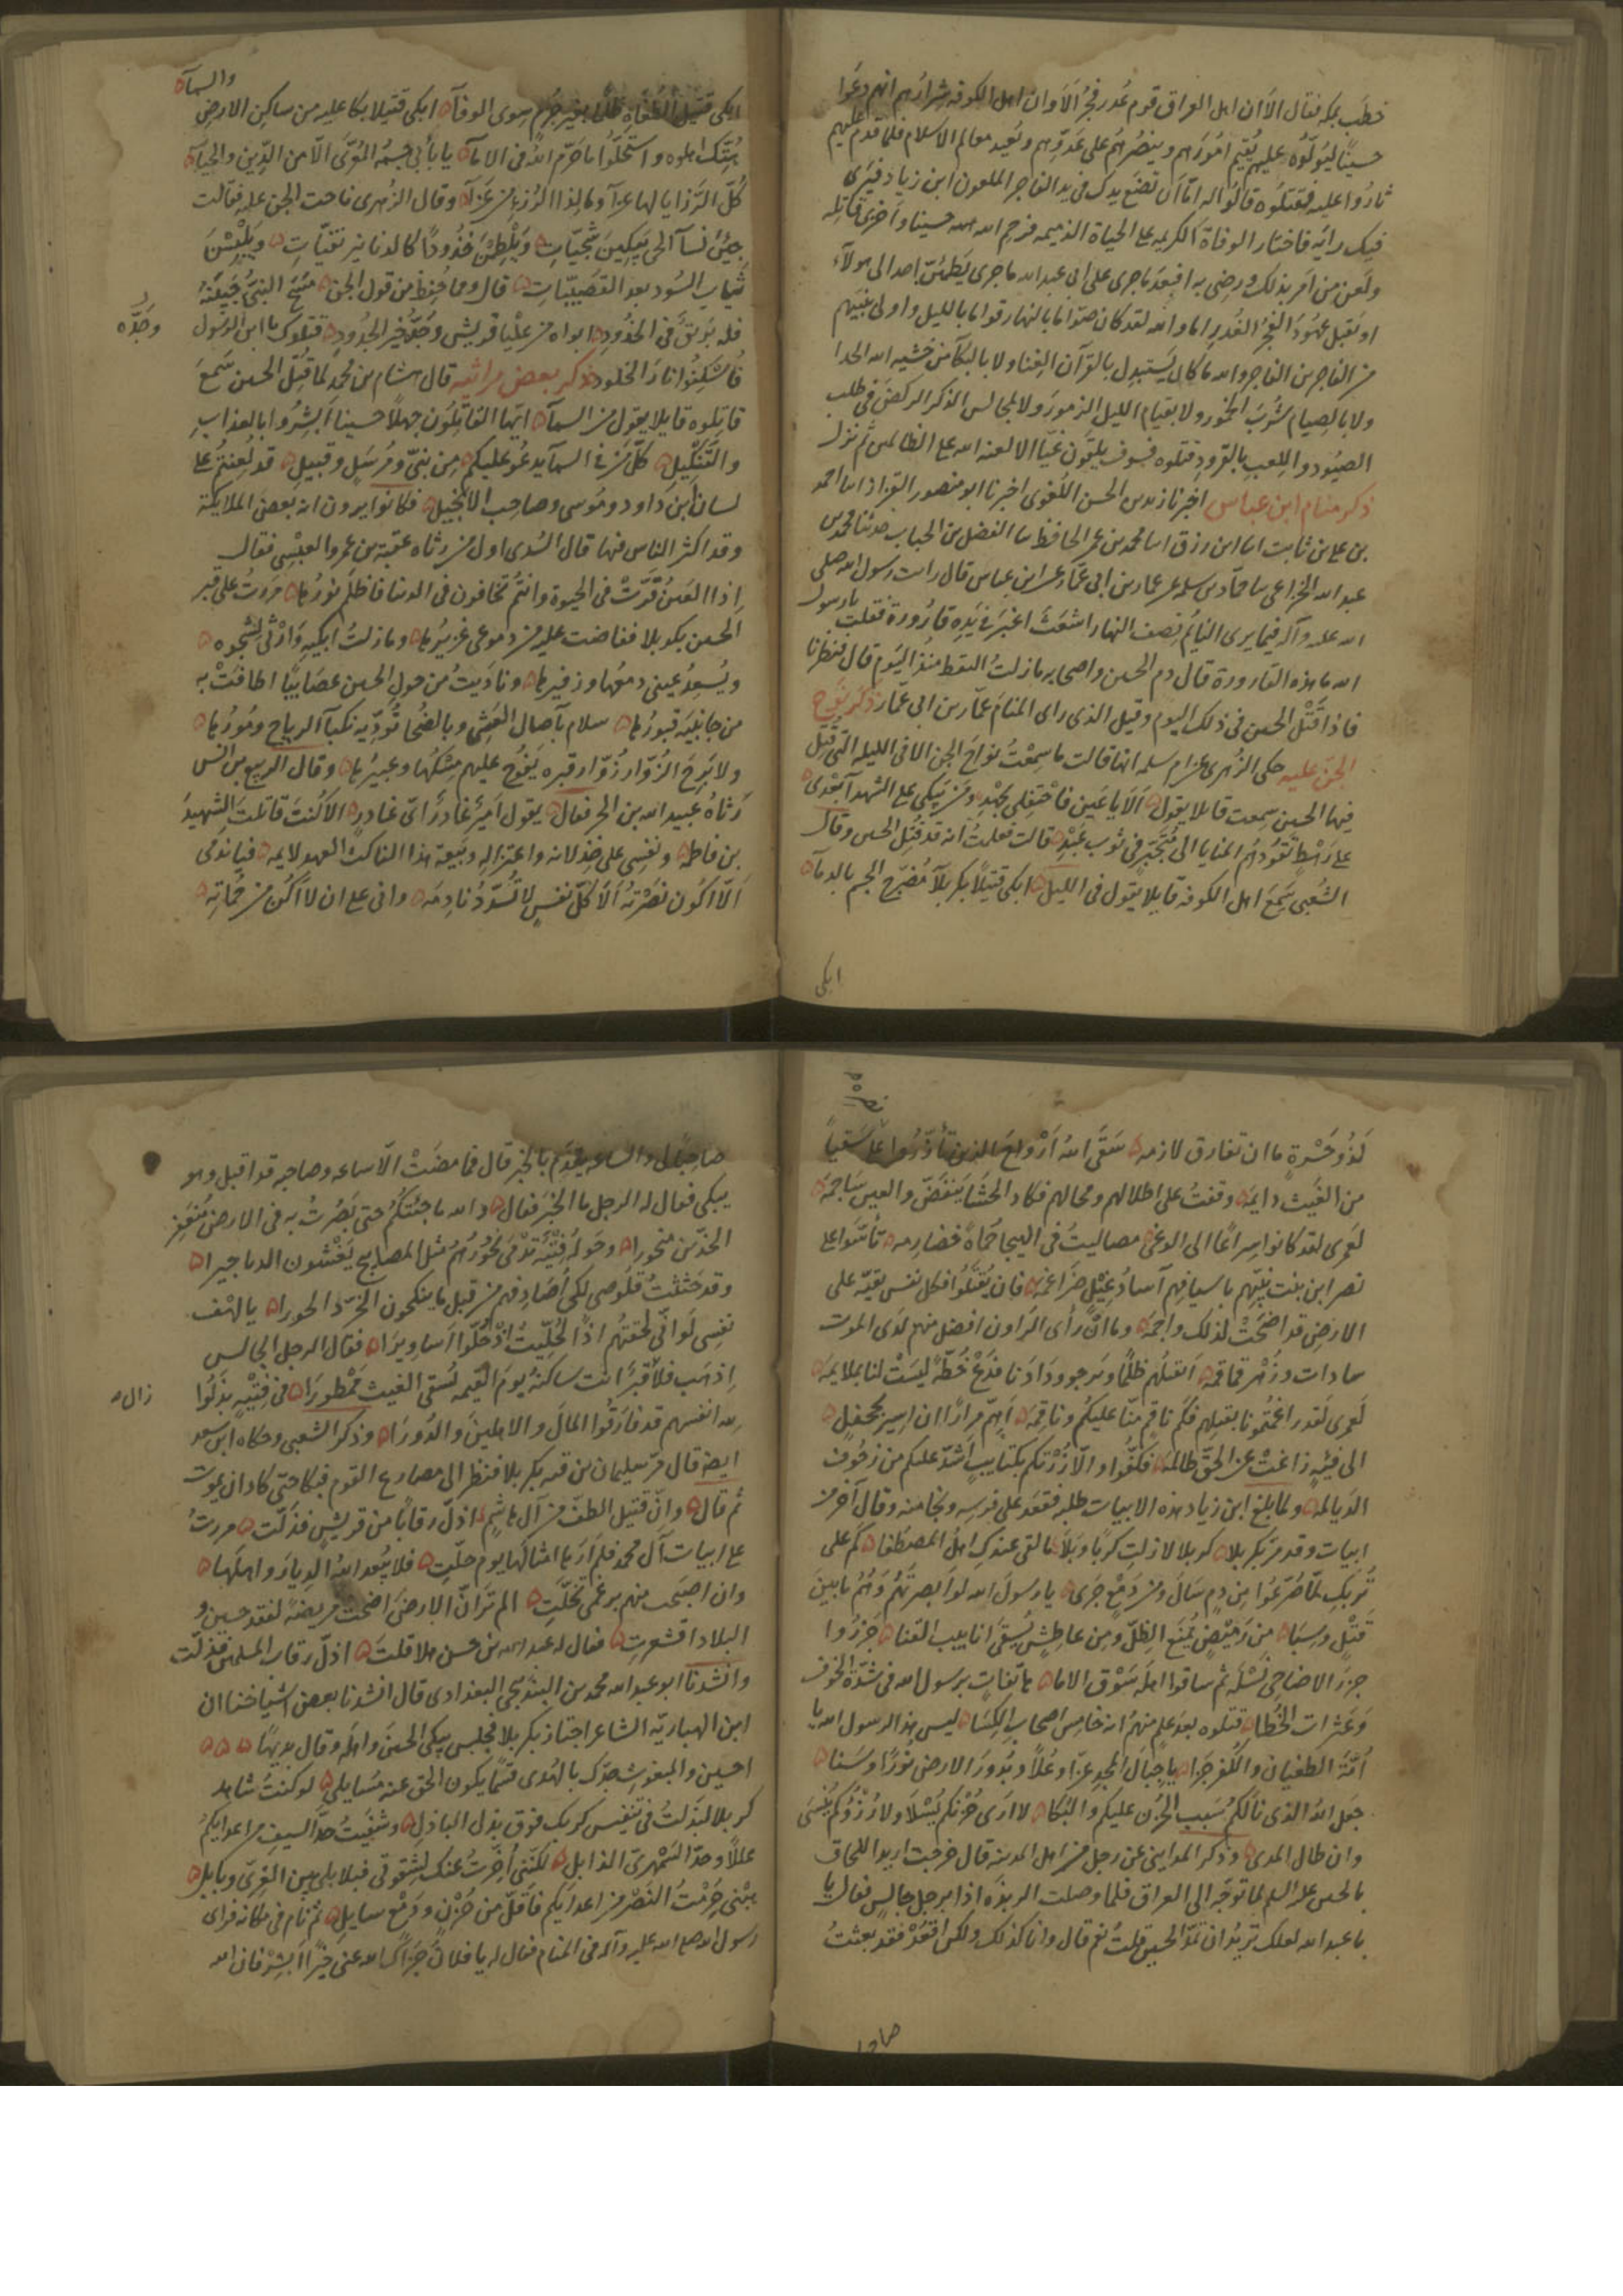 خطب بمكة فقال الا ان اهل العراق قوم غدر فجر الا وان اهل الكوفه شرارهم انهم دعوا
حسينا ليولوه عليهم يقيم امورهم وينصرهم على عدوهم ويعيد معالم الاسلام فلما قدم عليهم
ثاروا عليه فقتلوه قالوا له اما ان تضع يدك في يد الفاجر الملعون ابن زياد فيرى
فيك رايه فاختار الوفاة الكريمه على الحياة الذميمه فرحم الله حسينا واخزى قاتله
ولعن من امر بذلك ورضى به افبعد ما جرى على ابي عبد الله ما جرى يطمئن احد الى هولآء
او يقبل عهود الفجر الغدر اما والله لقد كان صواما بالنهار قواما بالليل واولى بنبيهم
من الفاجر بن الفاجر والله ما كان يستبدل بالقرآن الغنا ولا بالبكآ من خشيه الله الحدا
ولا بالصيام شرب الخمور ولا بقيام الليل الزمور ولا بمجالس الذكر الركض في طلب
الصيود واللعب بالقرود قتلوه فسوف يلقون غيا الا لعنه الله على الظالمين ثم نزل
ذكر منام ابن عباس اخبرنا زيد بن الحسن اللغوى اخبرنا ابو منصور القزاز انا احمد
بن على بن ثابت انا ابن رزق انا محمد بن عمر الحافظ نا الفضل بن الحباب حدثنا محمد بن
عبد الله الخزاعى نا حماد بن سلمه عن عمار بن ابى عمار عن ابن عباس قال رايت رسول الله صلى
الله عليه وآله فيما يرى النايم نصف النهار اشعث اغبر في يده قارورة فقلت يا رسول
الله ما هذه القارورة قال دم الحسين واصحابه ما زلت التقطه منذ اليوم قال فنظرنا
فاذا قتل الحسين في ذلك اليوم وقيل الذى راى المنام عمار بن ابى عمار ذكر نوح
الجن عليه حكى الزهرى عن ام سلمه انها قالت ما سمعت نواح الجن الا في الليله التي قتل
فيها الحسين سمعت قايلا يقول الا يا عين فاحتفلي بجهد ومن يبكي على الشهدآ بعدى
على رهط تقودهم المنايا الى متجبر في ثوب عبد قالت فعلمت انه قد قتل الحسين وقال
الشعبى سمع اهل الكوفه قايلا يقول في الليل ابكى قتيلا بكربلآ مضرج الجسم بالدمآ
ابكى
والسمآ
ابكى قتيل الطغاة ظلما بغير جرم سوى الوفآ ابكى قتيلا بكا عليه من ساكن الارض
هتك اهلوه واستحلوا ما حرم الله في الامآ يا بأبي جسمه المعرى الا من الدين والحيآ
كل الرزايا لها عزآ وما لذا الرزء من عزآ وقال الزهرى ناحت الجن عليه فقالت
جئن نسآ الحى يبكين شجيات ويلطمن خدودا كالدنانير نقيات ويلبسن
ثياب السود بعد القصبيات قال ومما حفظ من قول الجن مسح النبي جبينه
وجده
فله بريق في الخدود ابواه من عليا قريش وجده خير الجدود قتلوك يا ابن الرسول
فاسكنوا نار الخلود ذكر بعض مراثيه قال هشام بن محمد لما قتل الحسين سمع
قاتلوه قايلا يقول من السمآ ايها القاتلون جهلا حسينا ابشروا بالعذاب
والتنكيل كل من في السمآ يدعو عليكم من نبي ومرسل وقبيل قد لعنتم على
لسان ابن داود وموسى وصاحب الانجيل فكانوا يرون انه بعض الملايكة
وقد اكثر الناس فيها قال السدى اول من رثاه عقبة بن عمرو العبسى فقال
اذا العين قرت في الحيوة وانتم تخافون في الدنيا فاظلم نورها مررت على قبر
الحسين بكربلا ففاضت عليه من دموعى غزيرها وما زلت ابكيه وارثى لشجوه
ويسعد عينى دمعها وزفيرها وناديت من حول الحسين عصايبا اطافت به
من جانبيه قبورها سلام بآصال العشى وبالضحا تؤديه نكبآ الرياح ومورها
ولا برح الزوار زوار قبره يفوح عليهم مسكها وعبيرها وقال الربيع بن انس
رثاه عبيد الله بن الحر فقال يقول امير غادر اى غادر الا كنت قاتلت الشهيد
بن فاطمه ونفسى على خذلانه واعتزاله وبيعة هذا الناكث العهد لايمه فياندمى
الا اكون نصرته الا كل نفس لا تسدد نادمه وانى على ان لا اكن من حماته
لذو حسرة ما ان تفارق لازمه سقى الله ارواح الذين تأزروا على سقيا
من الغيث دايمه وقفت على اطلالهم ومحالهم فكاد الحشا ينفض والعين ساجمه
لعمرى لقد كانوا سراعا الى الوغى مصاليت في الهيجا حماة خضارمه تأسوا على
نصر ابن بنت نبيهم باسيافهم آساد غيل ضراغمه فان يقتلوا فكل نفس بقيه على
الارض قد اضحت لذلك واجمه وما ان رأى الراؤن افضل منهم لدى الموت
سادات وزهر قماقمه اتقتلهم ظلما وترجو ودادنا فدع خطة ليست لنا بملايمه
لعمرى لقد راغمتمونا بقتلهم فكم ناقم منا عليكم وناقمه اهم مرارا ان اسير بجحفل
الى فيئه زاغت عن الحق ظالمه فكفوا والا زرتكم بكتايب اشد عليكم من زحوف
الديالمه ولما بلغ ابن زياد هذه الابيات طلبه فقعد على فرسه ونجا منه وقال آخر من
ابيات وقد مر بكربلا كربلا لا زلت كربا وبلا ما لقى عندك اهل المصطفا كم على
تربك لما صرعوا من دم سال ومن دمع جرى يا رسول الله لو ابصرتهم وهم ما بين
قتل وسبا من رميض يمنع الظل ومن عاطش يسقى انابيب القنا جزروا
جزر الاضاحى نسله ثم ساقوا اهله سوق الاما هاتفات برسول الله في شدة الخوف
وعثرات الخطا قتلوه بعد علم منهم انه خامس اصحاب الكسا ليس هذا لرسول الله يا
امة الطغيان والكفر جزا يا جبال المجد عزا وعلا وبدور الارض نورا وسنا
جعل الله الذى نالكم سبب الحزن عليكم والبكا لا ارى حزنكم يسلا ولا رزؤكم ينسى
وان طال المدى وذكر المداينى عن رجل من اهل المدينه قال خرجت اريد اللحاق
بالحسين عليه السلم لما توجه الى العراق فلما وصلت الربذه اذا برجل جالس فقال يا
با عبد الله لعلك تريد ان تمد الحسين قلت نعم قال وانا كذلك ولكن اقعد فقد بعثت
صاحبا
صاحبا لى والساعه يقدم بالخبر قال فما مضت الا ساعه وصاحبه قد اقبل وهو
يبكى فقال له الرجل ما الخبر فقال والله ما جئتكم حتى بصرت به في الارض منعفر
الخدين منحورا وحوله فتية تدمى نحورهم مثل المصابيح يغشون الدياجيرا
وقد حثثت قلوصى لكى اصادفهم من قبل ما ينكحون الخرد الحورا يا لهف
نفسى لو انى لحقتهم اذا لحليت اذ حلوا اساويرا فقال الرجل الجالس
زال
اذهب فلا قبرا انت ساكنه يوم القيمه تسقى الغيث ممطورا في فتية بذلوا
لله انفسهم قد فارقوا المال والاهلين والدورا وذكر الشعبى وحكاه ابن سعد
ايضا قال مر سليمان بن قته بكربلا فنظر الى مصارع القوم فبكا حتى كاد ان يموت
ثم قال وان قتيل الطف من آل هاشم اذل رقابا من قريش فذلت مررت
على ابيات آل محمد فلم ارها امثالها يوم حلت فلا يبعد الله الديار واهلها
وان اصبحت منهم برغمى تخلت الم تر ان الارض اضحت مريضة لفقد حسين و
البلاد اقشعرت فقال له عبد الله بن حسن هلا قلت اذل رقاب المسلمين فذلت
وانشدنا ابو عبد الله محمد بن البندنيجى البغدادى قال انشدنا بعض اشياخنا ان
ابن الهباريه الشاعر اجتاز بكربلا فجلس يبكى الحسين واهله وقال بديها
احسين والمبعوث جدك بالهدى قسما يكون الحق عنه مسايلى لو كنت شاهد
كربلا لبذلت في تنفيس كربك فوق بذل الباذل وسقيت حد السيف من اعدايكم
عللا وحد السمهرى الذابل لكننى اخرت عنك لشقوتى فبلابلى بين الغرى وبابل
هبنى حرمت النصر من اعدايكم فاقل من حزن ودمع سايل ثم نام في مكانه فراى
رسول الله صلى الله عليه وآله في المنام فقال له يا فلان جزاك الله عنى خيرا ابشر فان الله